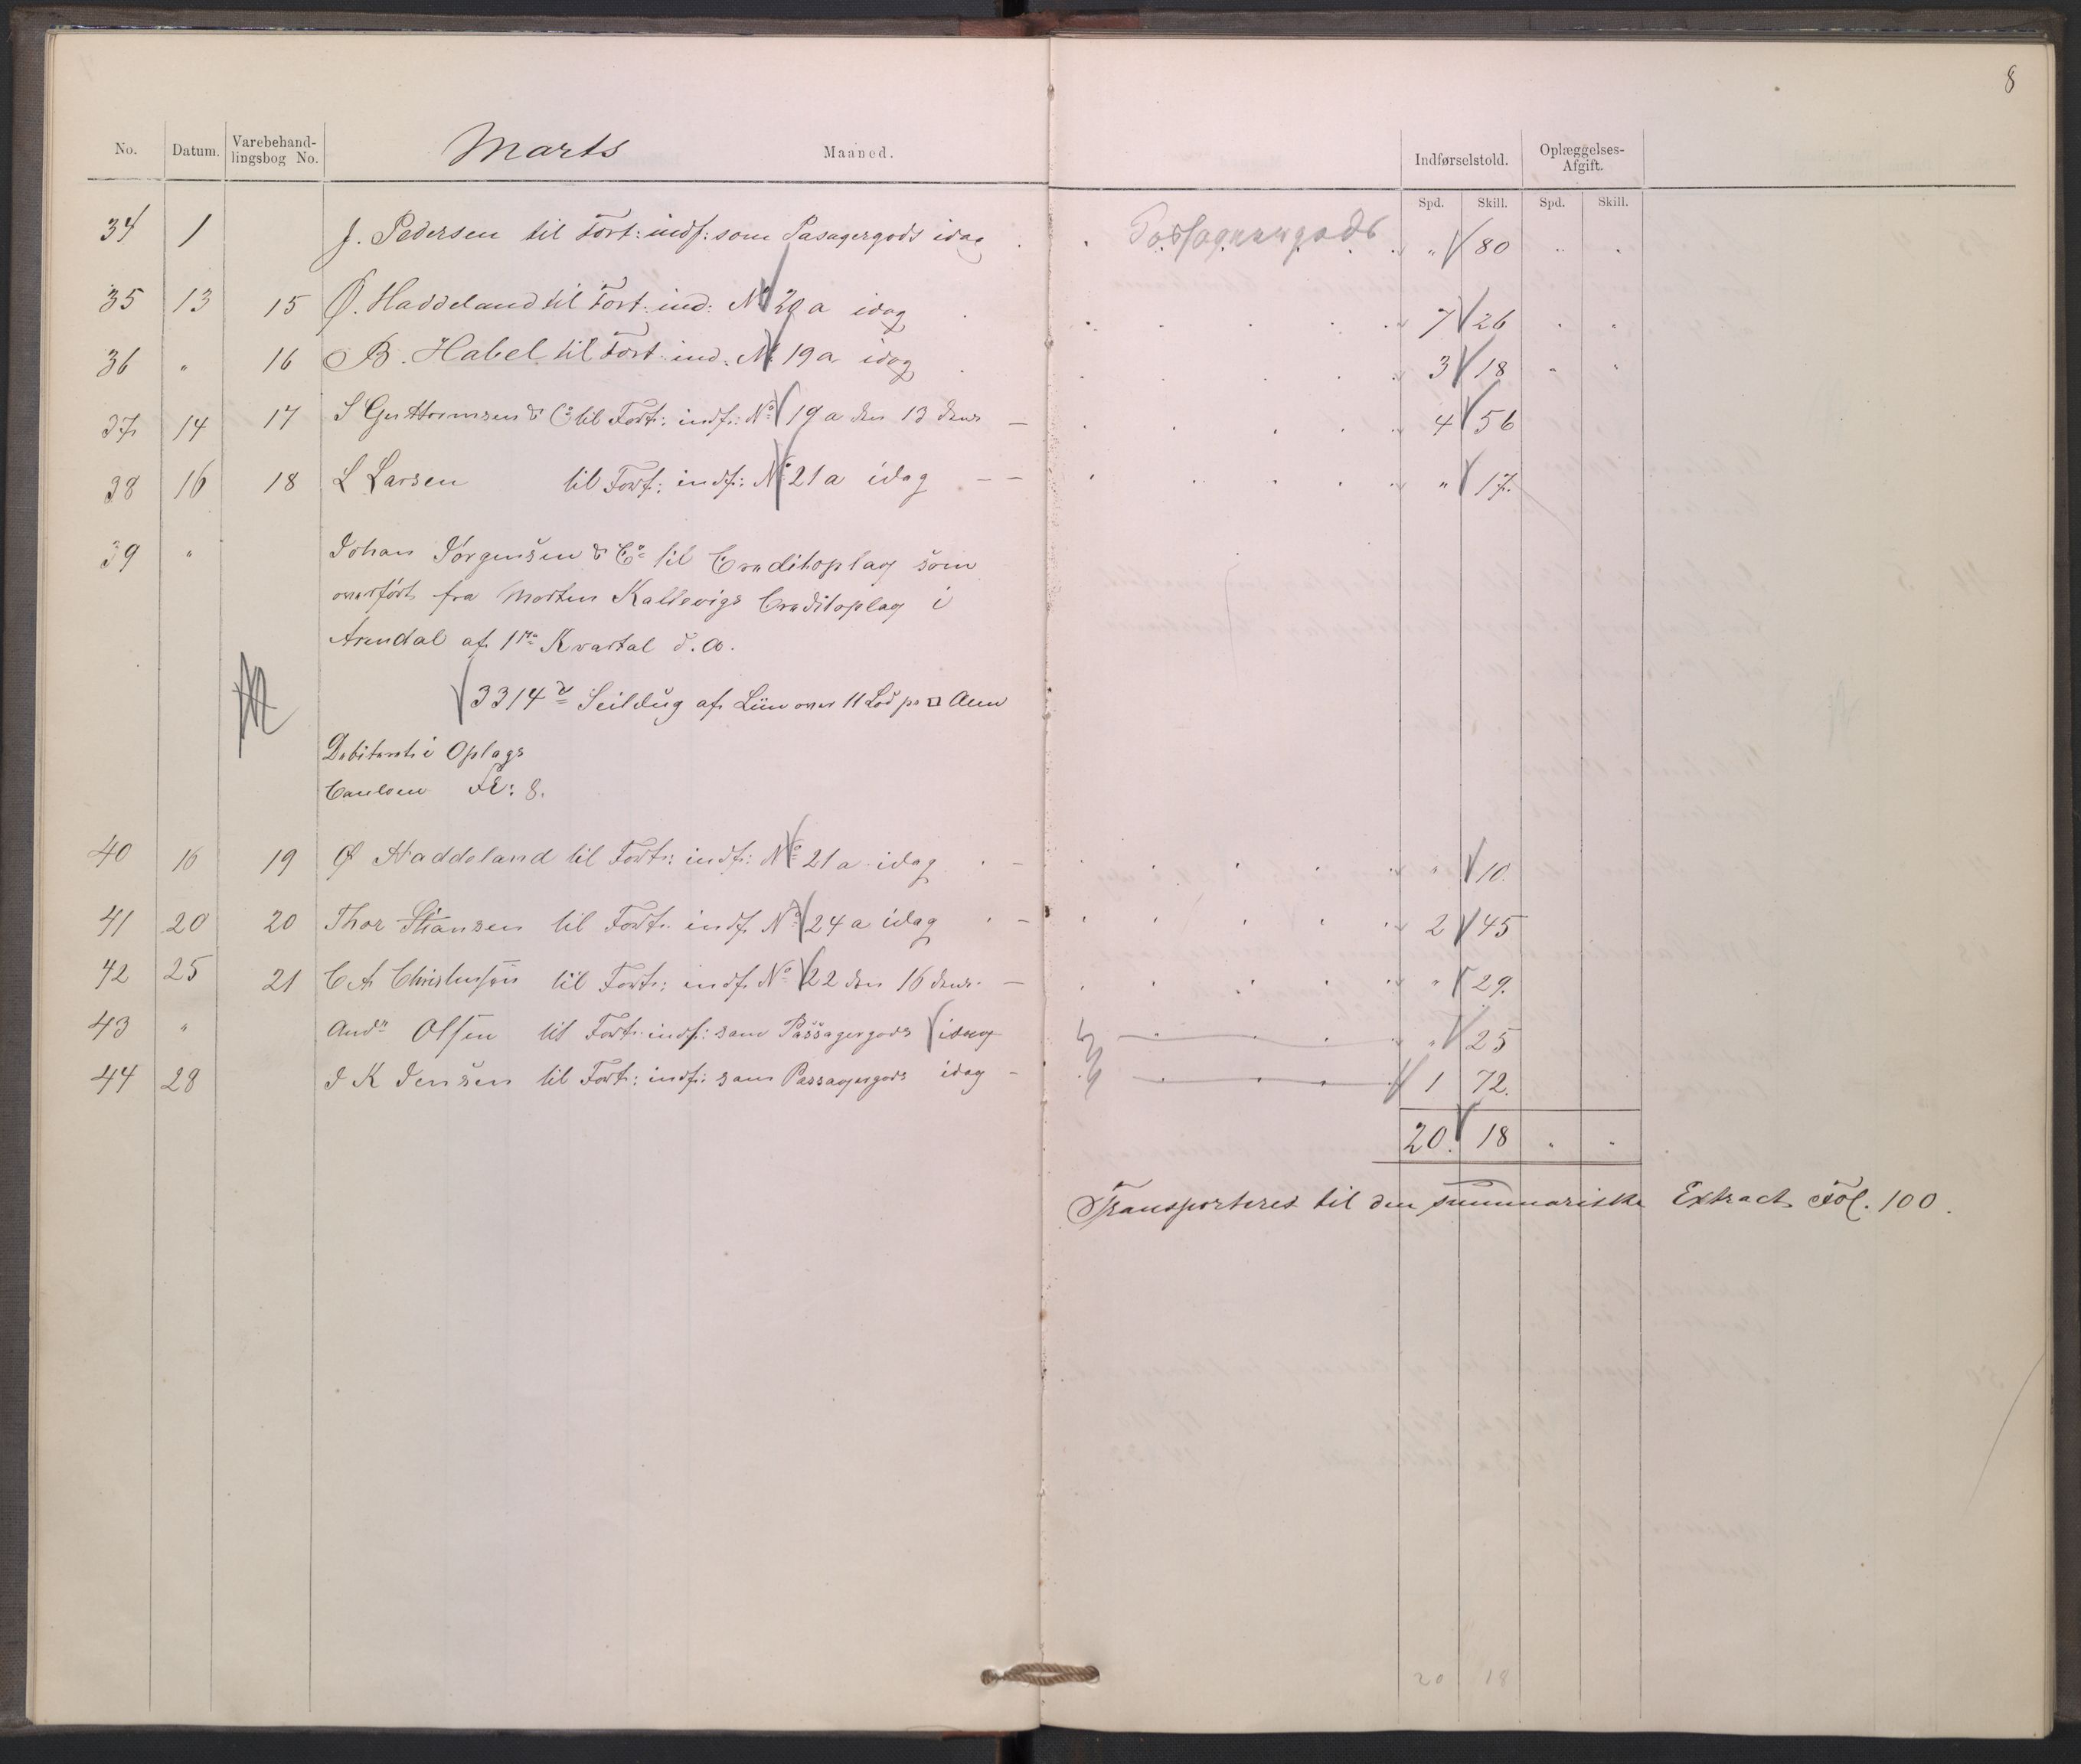 8
No. Datum. Varebehand-lingsbog No. Marts Maaned. Indførselstold. Oplæggelses-Afgift.
Spd. Skill. Spd. Skill.
34 1 J. Pedersen til Fort: indf: som Pasagergods idag Passagergods " 80 " "
35 13 15 Ø. Haddeland til Fort: ind: No 20 a idag 7 26 " "
36 " 16 B. Habel til Fort: ind. No 19 a idag 3 18 " "
37 14 17 S Guttormsen & Co til Fort: indf: No 19 a den 13 dens 4 56
38 16 18 L Larsen til Fort: indf: No 21 a idag " 17.
39 " Johan Jörgensen & Co til Creditoplag som
overfört fra Morten Kallevigs Creditoplag i
Arendal af 1ste Kvartal d. A.
3314 lb Seildug af Liin over 11 Lod pr □ Alen
Debiteret i Oplags
Contoen Fol: 8.
40 16 19 Ø Haddeland til Fort: indf: No 21 a idag " 10.
41 20 20 Thor Stiansen til Fort: indf. No 24 a idag 2 45
42 25 21 C A Christensen til Fort: indf. No 22 den 16 dens. " 29.
43 " Andr Olsen til Fort: indf: som Passagergods idag " 25
44 28 J K Jensen til Fort: indf: som Passagergods idag 1 72.
20. 18 " "
Transporteres til den summariske Extract Fol. 100.
20 18